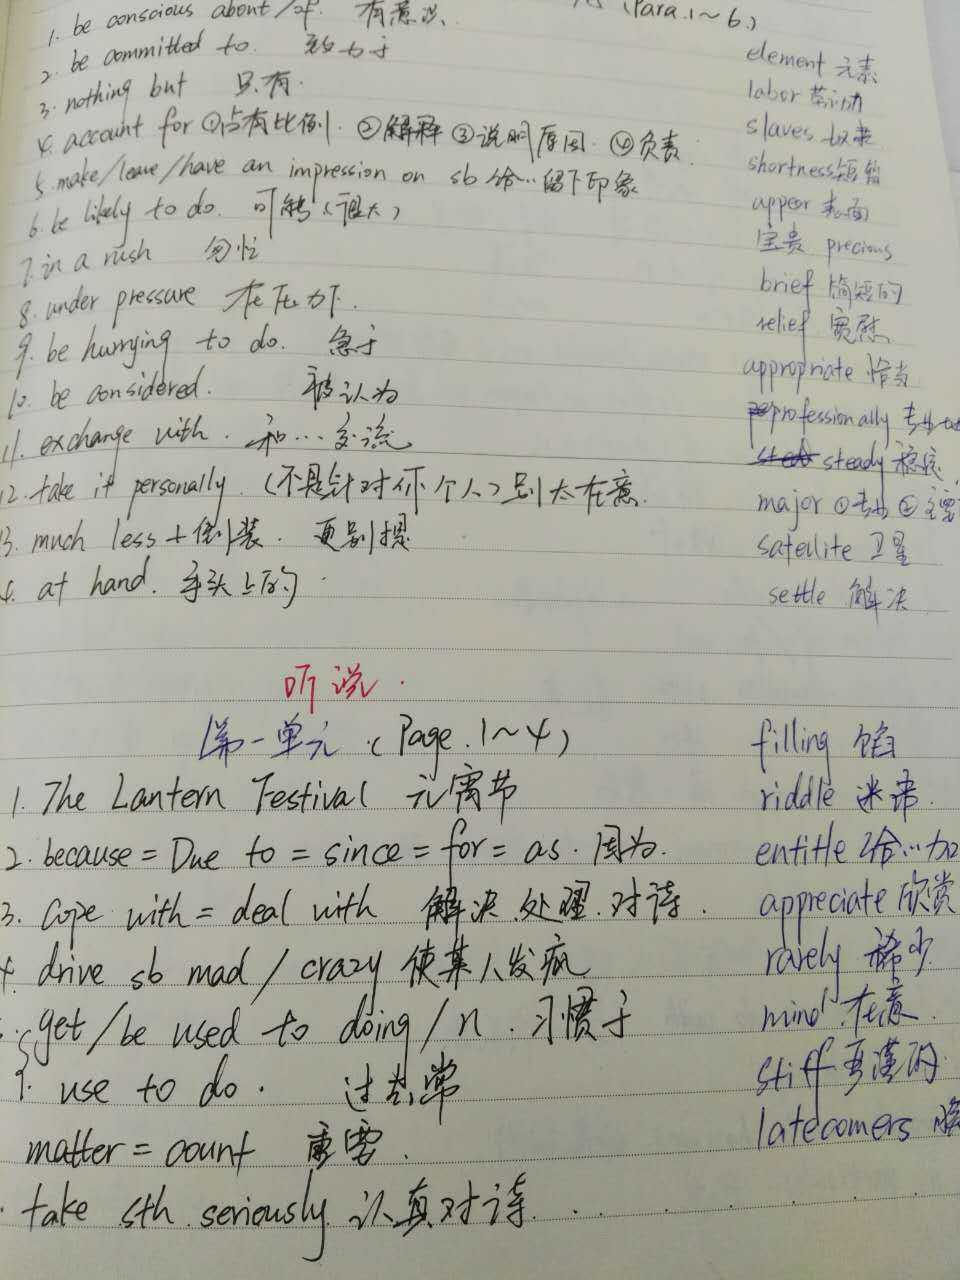 (Para.1~6)
1. be conscious about/of. 有意识
2. be committed to. 致力于
3. nothing but 只有.
4. account for ①占有比例. ②解释 ③说明原因. ④负责.
5. make/leave/have an impression on sb 给…留下印象
6. be likely to do. 可能(很大)
7. in a rush 匆忙
8. under pressure 在压力下.
9. be hurrying to do. 急于
10. be considered. 被认为
11. exchange with. 和…交流
12. take it personally. (不是针对你个人) 别太在意.
13. much less + 倒装. 更别提
at hand. 手头上的
element 元素
labor 劳动
slaves 奴隶
shortness 短暂
appear 表面
宝贵 precious
brief 简短的
relief 宽慰
appropriate 恰当
professionally
steady 稳定
major ①专业 ②主要
satellite 卫星
settle 解决
听说.
第一单元 (Page.1~4)
1. The Lantern Festival 元宵节
2. because = Due to = since = for = as. 因为.
3. Cope with = deal with 解决.处理.对待.
4. drive sb mad / crazy 使某人发疯
get/be used to doing/n. 习惯于
use to do. 过去常
matter = count 重要.
take sth seriously. 认真对待.
filling 馅
riddle 迷
entitle 给…加
appreciate 欣赏
rarely 稀少.
mind 在意.
stiff
latecomers